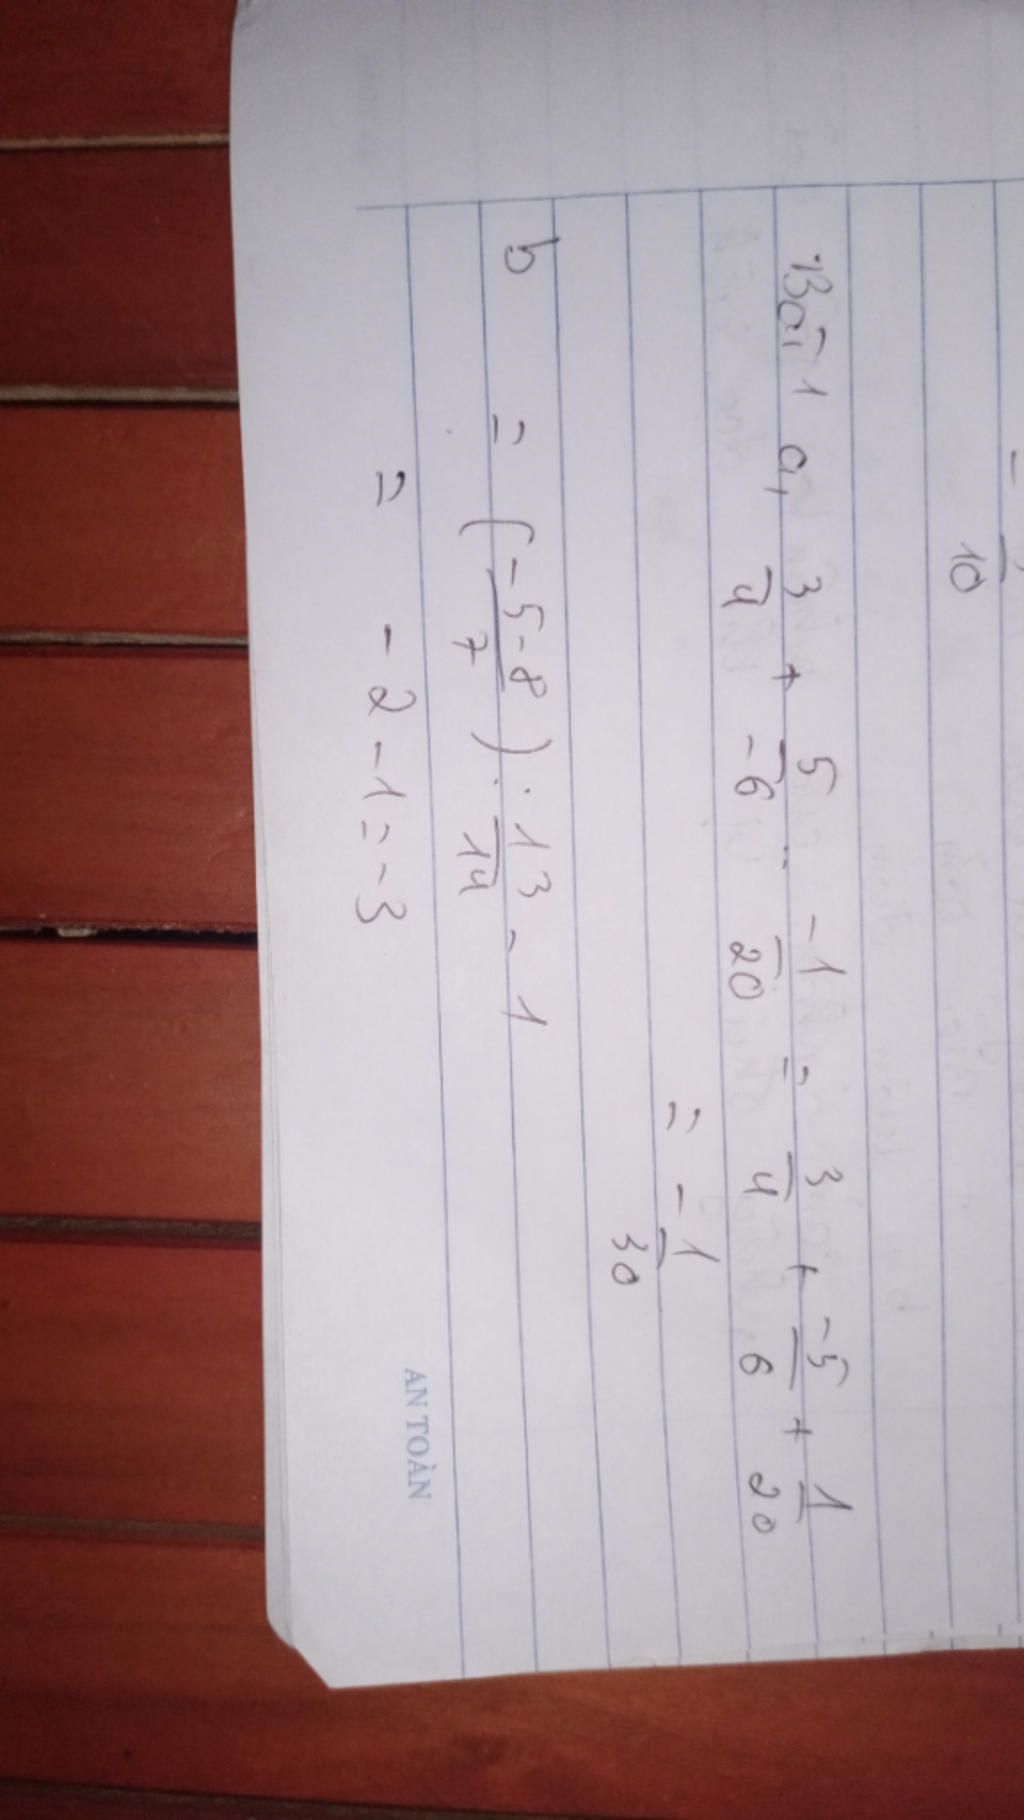 10
Bài 1 a, 3/4 + 5/-6 - -1/20 = 3/4 + -5/6 + 1/20
= -1/30
b = (-5-8/7) : 13/14 - 1
= -2 - 1 = -3
AN TOÀN